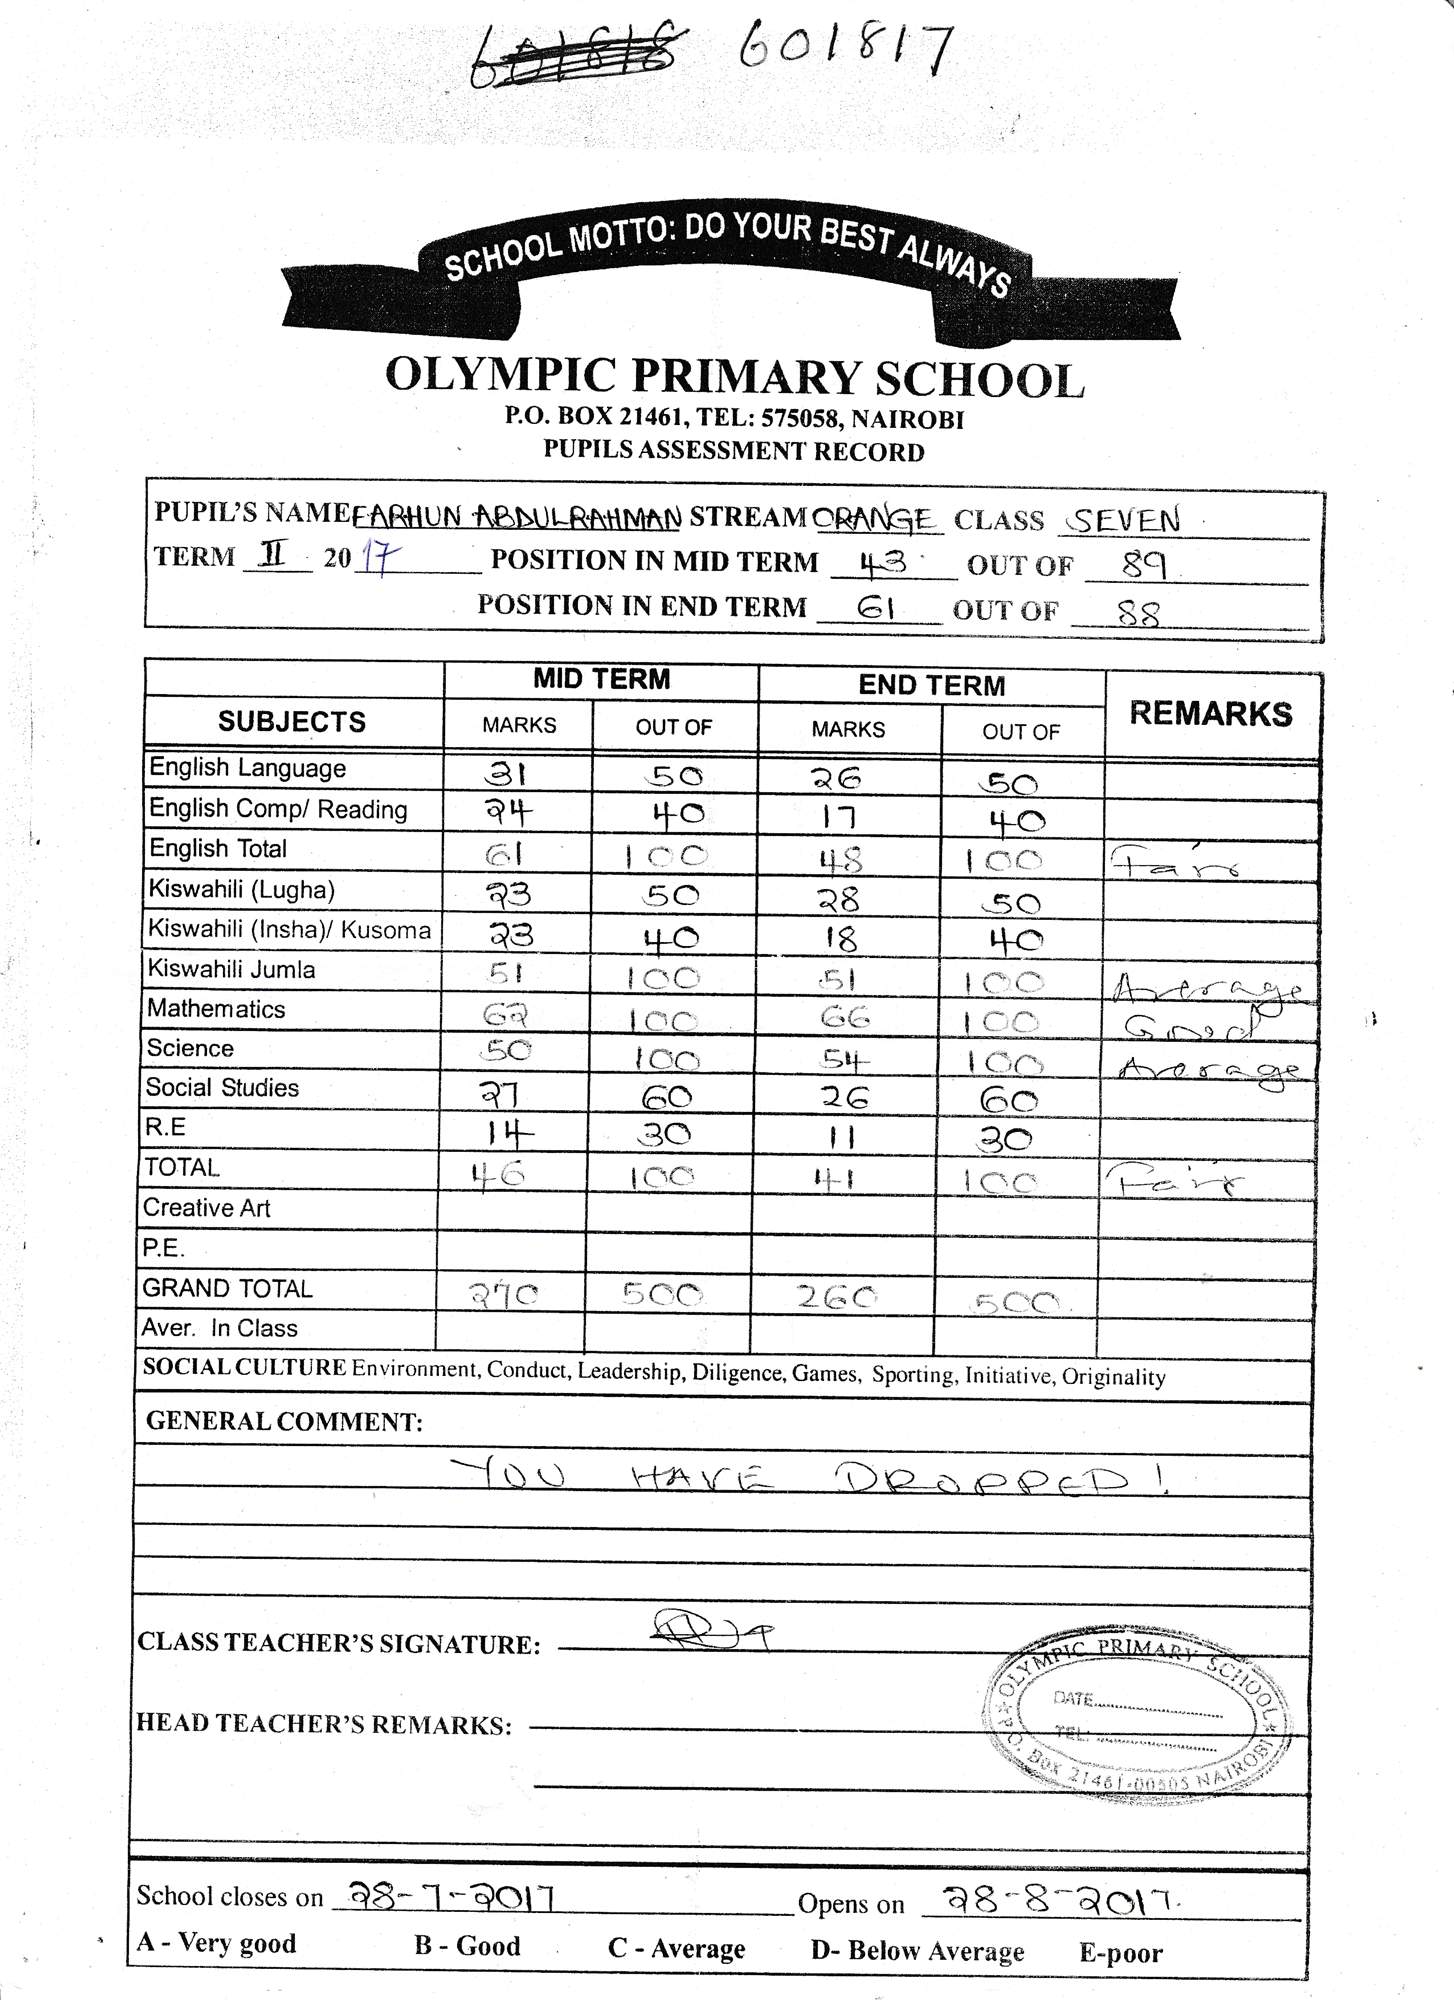 601818 601817
SCHOOL MOTTO: DO YOUR BEST ALWAYS
OLYMPIC PRIMARY SCHOOL
P.O. BOX 21461, TEL: 575058, NAIROBI
PUPILS ASSESSMENT RECORD
PUPIL'S NAME FARHUN ABDULRAHMAN STREAM ORANGE CLASS SEVEN
TERM II 2017 POSITION IN MID TERM 43 OUT OF 89
POSITION IN END TERM 61 OUT OF 88
MID TERM END TERM REMARKS
SUBJECTS MARKS OUT OF MARKS OUT OF
English Language 31 50 26 50
English Comp/ Reading 24 40 17 40
English Total 61 100 48 100 Fair
Kiswahili (Lugha) 23 50 28 50
Kiswahili (Insha)/ Kusoma 23 40 18 40
Kiswahili Jumla 51 100 51 100 Average
Mathematics 62 100 66 100 Good
Science 50 100 54 100 Average
Social Studies 27 60 26 60
R.E 14 30 11 30
TOTAL 46 100 41 100 Fair
Creative Art
P.E.
GRAND TOTAL 270 500 260 500
Aver. In Class
SOCIAL CULTURE Environment, Conduct, Leadership, Diligence, Games, Sporting, Initiative, Originality
GENERAL COMMENT:
YOU HAVE DROPPED!
CLASS TEACHER'S SIGNATURE:
HEAD TEACHER'S REMARKS:
OLYMPIC PRIMARY SCHOOL
DATE
TEL:
P.O. Box 21461-00505 NAIROBI
School closes on 28-7-2017 Opens on 28-8-2017.
A - Very good B - Good C - Average D- Below Average E-poor